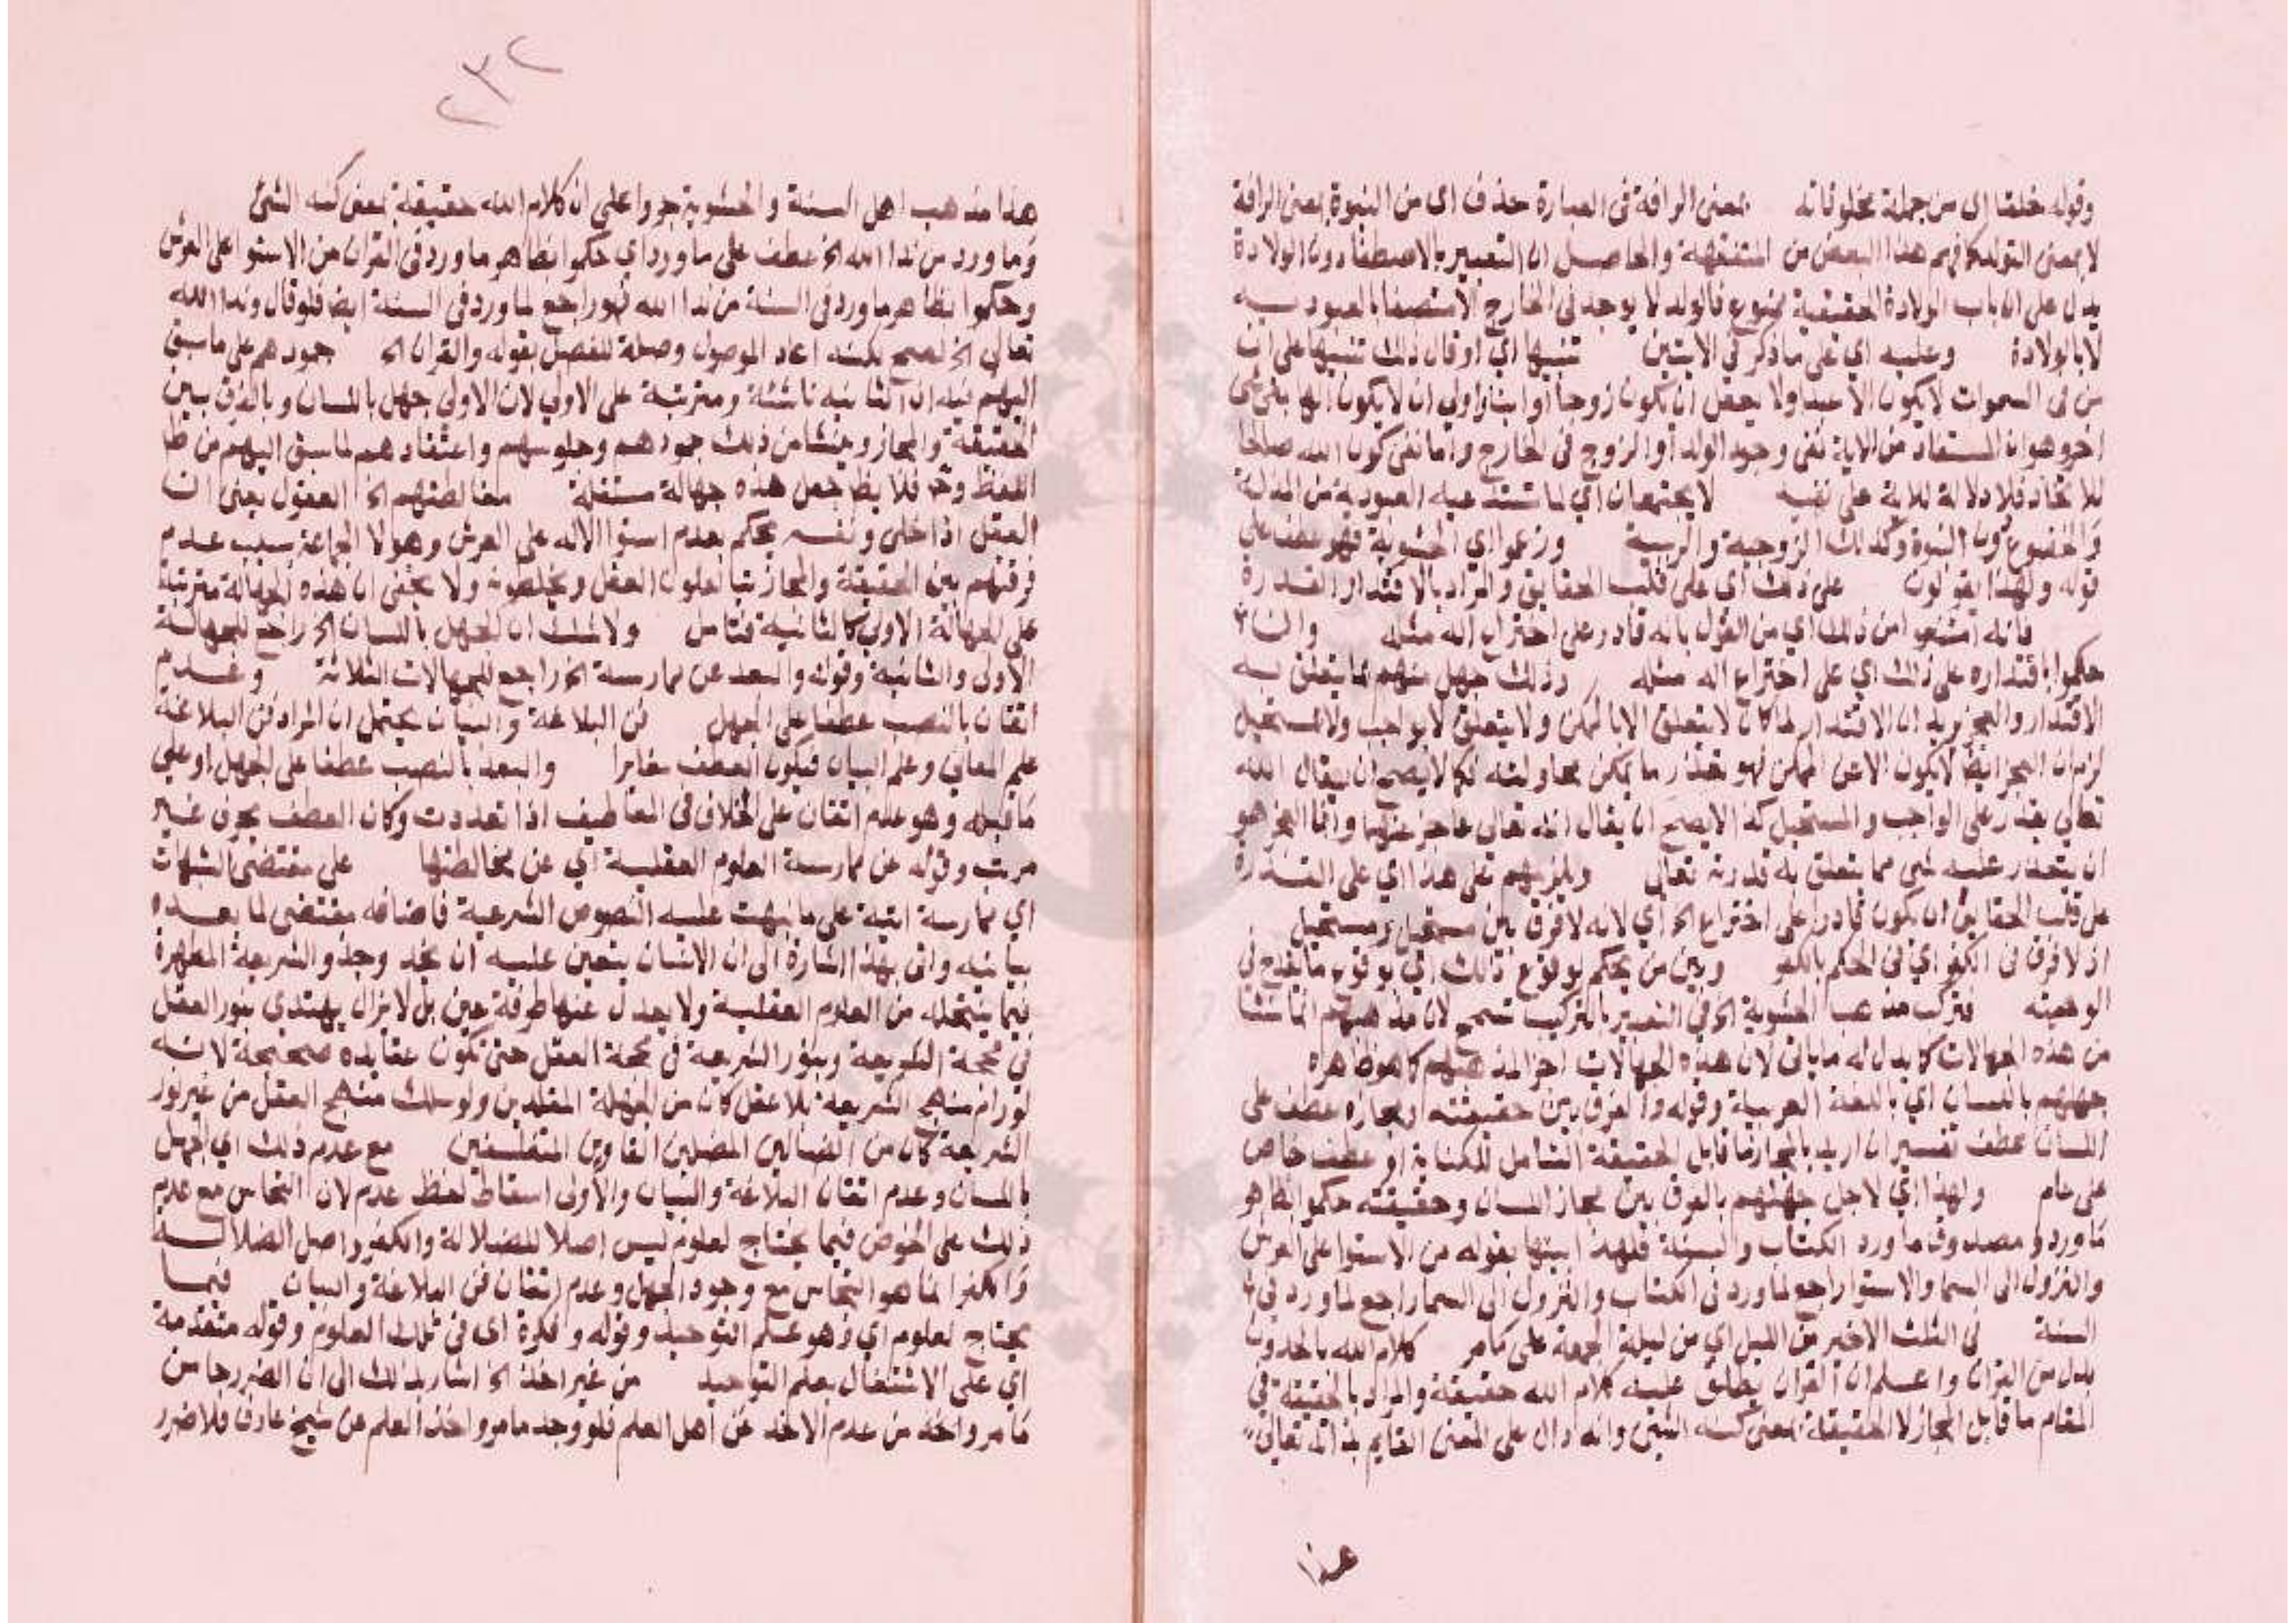 وقوله خلقا اي من جملة مخلوقاته بمعنى الرافة في العبارة حذف اي من النبوة بمعنى الرافة
لا بمعنى التولد كما فهم هذا البعض من المتفقهة والحاصل ان التعبير بالاصطفا دون الولادة
يدل على ان باب الولادة الحقيقية ممنوع فالولد لا يوجد في الخارج الا متصفا بالعبودية
لا بالولادة وعليه اي على ما ذكر في الايتين تنبيها اي او قال ذلك تنبيها على ان
من في السموات لا يكون الا عبدا ولا يعقل ان يكون زوجا او ابنا واولى ان لا يكون الها بقي شي
اخر وهو ان المستفاد من الاية نفي وجود الولد او الزوج في الخارج واما نفي كون الله صالحا
للاتخاذ فلا دلالة للاية على نفيه لا يجتمعان اي لما تستدعيه العبودية من المذلة
والخضوع دون النبوة وكذلك الزوجية والربية وزعموا اي الحشوية فهو عطف على
قوله ولهذا يقولون على ذلك اي على قلب الحقايق والمراد بالاقتدار القدرة
فانه امتنعوا من ذلك اي من القول بانه قادر على اختراع اله مثله وان
حكموا باقتداره على ذلك اي على اختراع اله مثله وذلك جهل منهم بما يتعلق به
الاقتدار والعجز يريد ان الاقتدار لما كان لا يتعلق الا بالممكن ولا يتعلق لا بواجب ولا بمستحيل
لزم ان العجز ايضا لا يكون الا عن الممكن فهو تعذر ما يمكن محاولته فكما لا يصح ان يقال الله
تعالى يقدر على الواجب والمستحيل كذا لا يصح ان يقال انه تعالى عاجز عنهما وانما العجز هو
ان يتعذر عليه شي مما يتعلق به قدرته تعالى ويلزمهم على هذا اي على القدرة
على قلب الحقايق ان يكون قادرا على اختراع الخ اي لانه لا فرق بين مستحيل ومستحيل
اذ لا فرق في الكفر اي في الحكم بالكفر وبين من يحكم بوقوع ذلك اي بوقوع ما يقدح في
الوهيته فتركب مذهب الحشوية الخ في التعبير بالتركيب تسمح لان مذهبهم انما نشا
من هذه الجهالات كما يدل له ما ياتي لان هذه الجهالات اجزا لمذهبهم كما هو ظاهره
جهلهم باللسان اي باللغة العربية وقوله والفرق بين حقيقته ومجازه عطف على
اللسان عطف تفسير ان اريد بالمجاز ما قابل الحقيقة الشامل للكناية او عطف خاص
على عام ولهذا اي لاجل جهلهم بالفرق بين مجاز اللسان وحقيقته حكموا بظاهر
ما ورد ومصدوق ما ورد الكتاب والسنة فلهذا بينها بقوله من الاستوا على العرش
والنزول الى السما والاستوا راجع لما ورد في الكتاب والنزول الى السما راجع لما ورد في
السنة في الثلث الاخير من الليل اي من ليلة الجمعة على ما مر كلام الله بالحدوث
بدل من القران واعلم ان القران يطلق عليه كلام الله حقيقة والمراد بالحقيقة في
المقام ما قابل المجاز لا الحقيقة بمعنى كنه الشي وانه دال على المعنى القايم بذاته تعالى
هذا
٢٣٢
هذا مذهب اهل السنة والحشوية جروا على ان كلام الله حقيقة بمعنى كنه الشئ
وما ورد من ندا الله الخ عطف على ما ورد اي حكموا بظاهر ما ورد في القران من الاستوا على العرش
وحكموا بظاهر ما ورد في السنة من ندا الله فهو راجع لما ورد في السنة ايضا فلو قال وندا الله
تعالى الخ لصح لكنه اعاد الموصول وصلة للفصل بقوله والقران الخ جمودهم على ما سبق
اليهم فيه ان الثانية ناشئة ومترتبة على الاولى لان الاولى جهل باللسان وبالفرق بين
الحقيقة والمجاز وينشا من ذلك جمودهم وجلوسهم واعتقادهم لما سبق اليهم من ظا
اللفظ وح فلا يظهر جعل هذه جهالة مستقلة مغالطتهم الخ العقول يعني ان
العقل اذا خلى ونفسه يحكم بعدم استوا الاله على العرش وهولا الجماعة بسبب عدم
فرقهم بين الحقيقة والمجاز يغالطون العقل ويخلصونه ولا يخفى ان هذه الجهالة مترتبة
على الجهالة الاولى كالثانية فتامل ولا شك ان الجهل باللسان الخ راجع للجهالة
الاولى والثانية وقوله والبعد عن ممارسة الخ راجع للجهالات الثلاثة وعدم
اتقان بالنصب عطفا على الجهل فن البلاغة والبيان يحتمل ان المراد فن البلاغة
علم المعاني وعلم البيان فيكون العطف مغايرا والبعد بالنصب عطفا على الجهل او على
ما قبله وهو عدم اتقان على الخلاف في المعاطيف اذا تعددت وكان العطف بحرف غير
مرتب وقوله عن ممارسة العلوم العقلية اي عن مخالطتها على مقتضى الشبهات
اي ممارسة اتية على ما نبهت عليه النصوص الشرعية فاضافة مقتضى لما بعده
بيانية واتى بهذا اشارة الى ان الانسان يتعين عليه ان يحذ وحذو الشريعة المطهرة
فيما ينتحله من العلوم العقلية ولا يعدل عنها طرفة عين بل لا يزال يهتدي بنور العقل
في محجة الشريعة وبنور الشريعة في محجة العقل حتى تكون عقايده صحيحة لانه
لو رام منهج الشريعة بلا عقل كان من الجهلة المقلدين ولو سلك منهج العقل من غير نور
الشريعة كان من الضالين المضلين الغاوين المتفلسفين مع عدم ذلك اي الجهل
باللسان وعدم اتقان البلاغة والبيان والاولى اسقاط لفظ عدم لان التجاسر مع عدم
ذلك على الخوض فيما يحتاج لعلوم ليس اصلا للضلالة والكفر واصل الضلالة
والكفر انما هو التجاسر مع وجود الجهل وعدم اتقان فن البلاغة والبيان فيما
يحتاج لعلوم اي وهو علم التوحيد وقوله وفكرة اي في تلك العلوم وقوله متقدمة
اي على الاشتغال بعلم التوحيد من غير اخذ الخ اشار بذلك الى ان الضرر جا من
ما مر واخذ من عدم الاخذ عن اهل العلم فلو وجد ما مر واخذ العلم عن شيخ عارف فلا ضرر